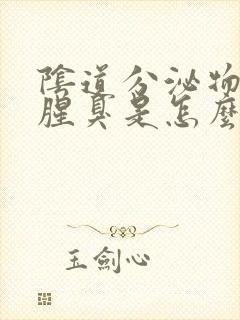 陰道分泌物
腥臭是怎麼
玉劍心